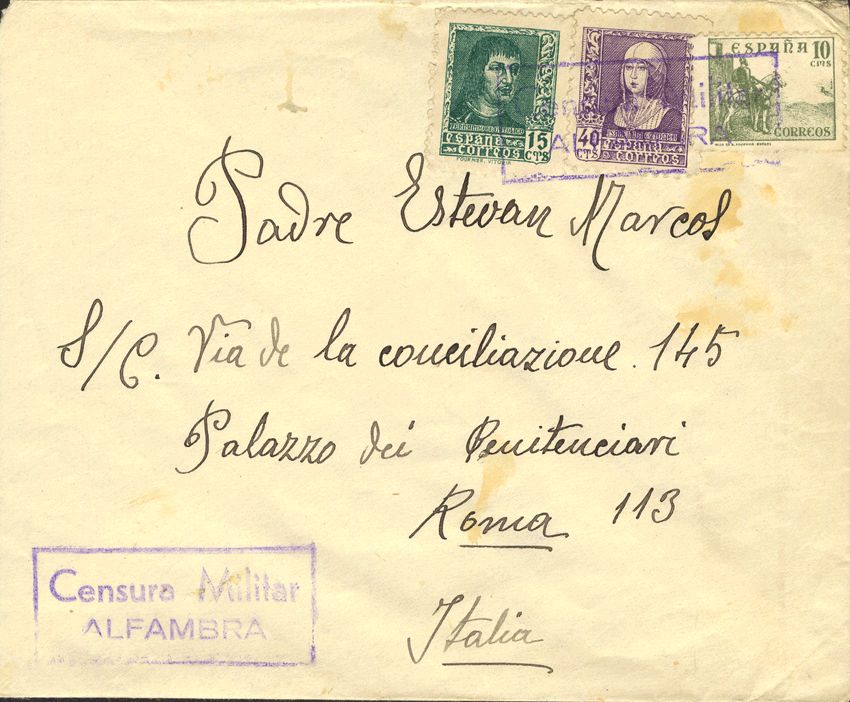 ESPAÑA 10
CTMS
CORREOS
15
CTS
ESPAÑA
CORREOS
FOURNIER. VITORIA
40
CTS
ESPAÑA
CORREOS
Censura Militar
ALFAMBRA
Padre Estevan Marcos
S/C. Via de la conciliazione. 145
Palazzo dei Penitenciari
Roma 113
Italia
Censura Militar
ALFAMBRA